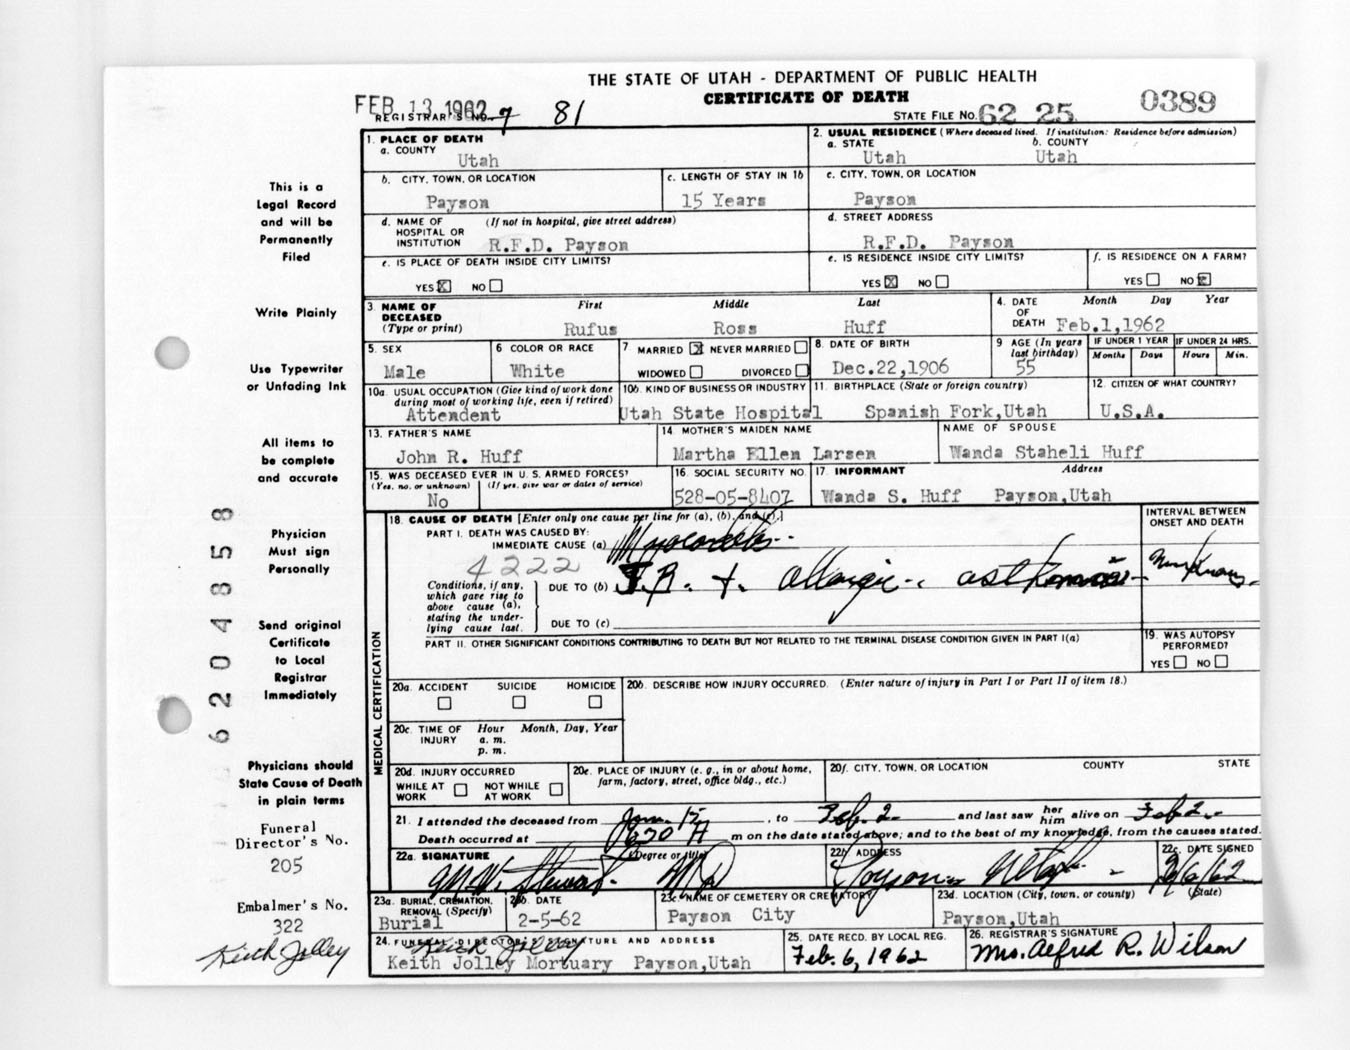 THE STATE OF UTAH - DEPARTMENT OF PUBLIC HEALTH
CERTIFICATE OF DEATH
FEB 13 1962
REGISTRAR'S NO. 7 81
STATE FILE NO. 62 25 0389
1. PLACE OF DEATH
a. COUNTY
Utah
2. USUAL RESIDENCE (Where deceased lived. If institution: Residence before admission)
a. STATE b. COUNTY
Utah Utah
b. CITY, TOWN, OR LOCATION
Payson
c. LENGTH OF STAY IN 1b
15 Years
c. CITY, TOWN, OR LOCATION
Payson
d. NAME OF (If not in hospital, give street address)
HOSPITAL OR
INSTITUTION R.F.D. Payson
d. STREET ADDRESS
R.F.D. Payson
e. IS PLACE OF DEATH INSIDE CITY LIMITS?
YES X NO
e. IS RESIDENCE INSIDE CITY LIMITS?
YES X NO
f. IS RESIDENCE ON A FARM?
YES NO X
3. NAME OF First Middle Last
DECEASED
(Type or print) Rufus Ross Huff
4. DATE Month Day Year
OF
DEATH Feb.1,1962
5. SEX
Male
6 COLOR OR RACE
White
7 MARRIED X NEVER MARRIED
WIDOWED DIVORCED
8. DATE OF BIRTH
Dec.22,1906
9 AGE (In years
last birthday)
55
IF UNDER 1 YEAR
Months Days
IF UNDER 24 HRS.
Hours Min.
10a. USUAL OCCUPATION (Give kind of work done
during most of working life, even if retired)
Attendent
10b. KIND OF BUSINESS OR INDUSTRY
Utah State Hospital
11. BIRTHPLACE (State or foreign country)
Spanish Fork,Utah
12. CITIZEN OF WHAT COUNTRY?
U.S.A.
13. FATHER'S NAME
John R. Huff
14 MOTHER'S MAIDEN NAME
Martha Ellen Larsen
NAME OF SPOUSE
Wanda Staheli Huff
15. WAS DECEASED EVER IN U. S. ARMED FORCES?
(Yes, no, or unknown) (If yes, give war or dates of service)
No
16. SOCIAL SECURITY NO.
528-05-8407
17. INFORMANT Address
Wanda S. Huff Payson,Utah
MEDICAL CERTIFICATION
18. CAUSE OF DEATH [Enter only one cause per line for (a), (b), and (c).]
PART I. DEATH WAS CAUSED BY:
IMMEDIATE CAUSE (a) Myocarditis
4222
Conditions, if any,
which gave rise to
above cause (a),
stating the under-
lying cause last.
DUE TO (b) T.B. + allergic asthma
DUE TO (c)
INTERVAL BETWEEN
ONSET AND DEATH
PART II. OTHER SIGNIFICANT CONDITIONS CONTRIBUTING TO DEATH BUT NOT RELATED TO THE TERMINAL DISEASE CONDITION GIVEN IN PART I(a)
19. WAS AUTOPSY
PERFORMED?
YES NO
20a. ACCIDENT SUICIDE HOMICIDE
20b. DESCRIBE HOW INJURY OCCURRED. (Enter nature of injury in Part I or Part II of item 18.)
20c. TIME OF Hour Month, Day, Year
INJURY a. m.
p. m.
20d. INJURY OCCURRED
WHILE AT NOT WHILE
WORK AT WORK
20e. PLACE OF INJURY (e. g., in or about home,
farm, factory, street, office bldg., etc.)
20f. CITY, TOWN, OR LOCATION COUNTY STATE
21. I attended the deceased from Jan. 15, to Feb. 2 and last saw her him alive on Feb 2
Death occurred at 630 A m on the date stated above; and to the best of my knowledge, from the causes stated.
22a. SIGNATURE (Degree or title)
Stewart MD
22b. ADDRESS
Payson Utah
22c. DATE SIGNED
2/6/62
23a. BURIAL, CREMATION,
REMOVAL (Specify)
Burial
23b. DATE
2-5-62
23c. NAME OF CEMETERY OR CREMATORY
Payson City
23d. LOCATION (City, town, or county) (State)
Payson,Utah
24. FUNERAL DIRECTOR'S SIGNATURE AND ADDRESS
Keith Jolley
Keith Jolley Mortuary Payson,Utah
25. DATE RECD. BY LOCAL REG.
Feb. 6, 1962
26. REGISTRAR'S SIGNATURE
Mrs. Alfred R. Wilson
This is a
Legal Record
and will be
Permanently
Filed
Write Plainly
Use Typewriter
or Unfading Ink
All items to
be complete
and accurate
Physician
Must sign
Personally
Send original
Certificate
to Local
Registrar
Immediately
Physicians should
State Cause of Death
in plain terms
Funeral
Director's No.
205
Embalmer's No.
322
Keith Jolley
6204858